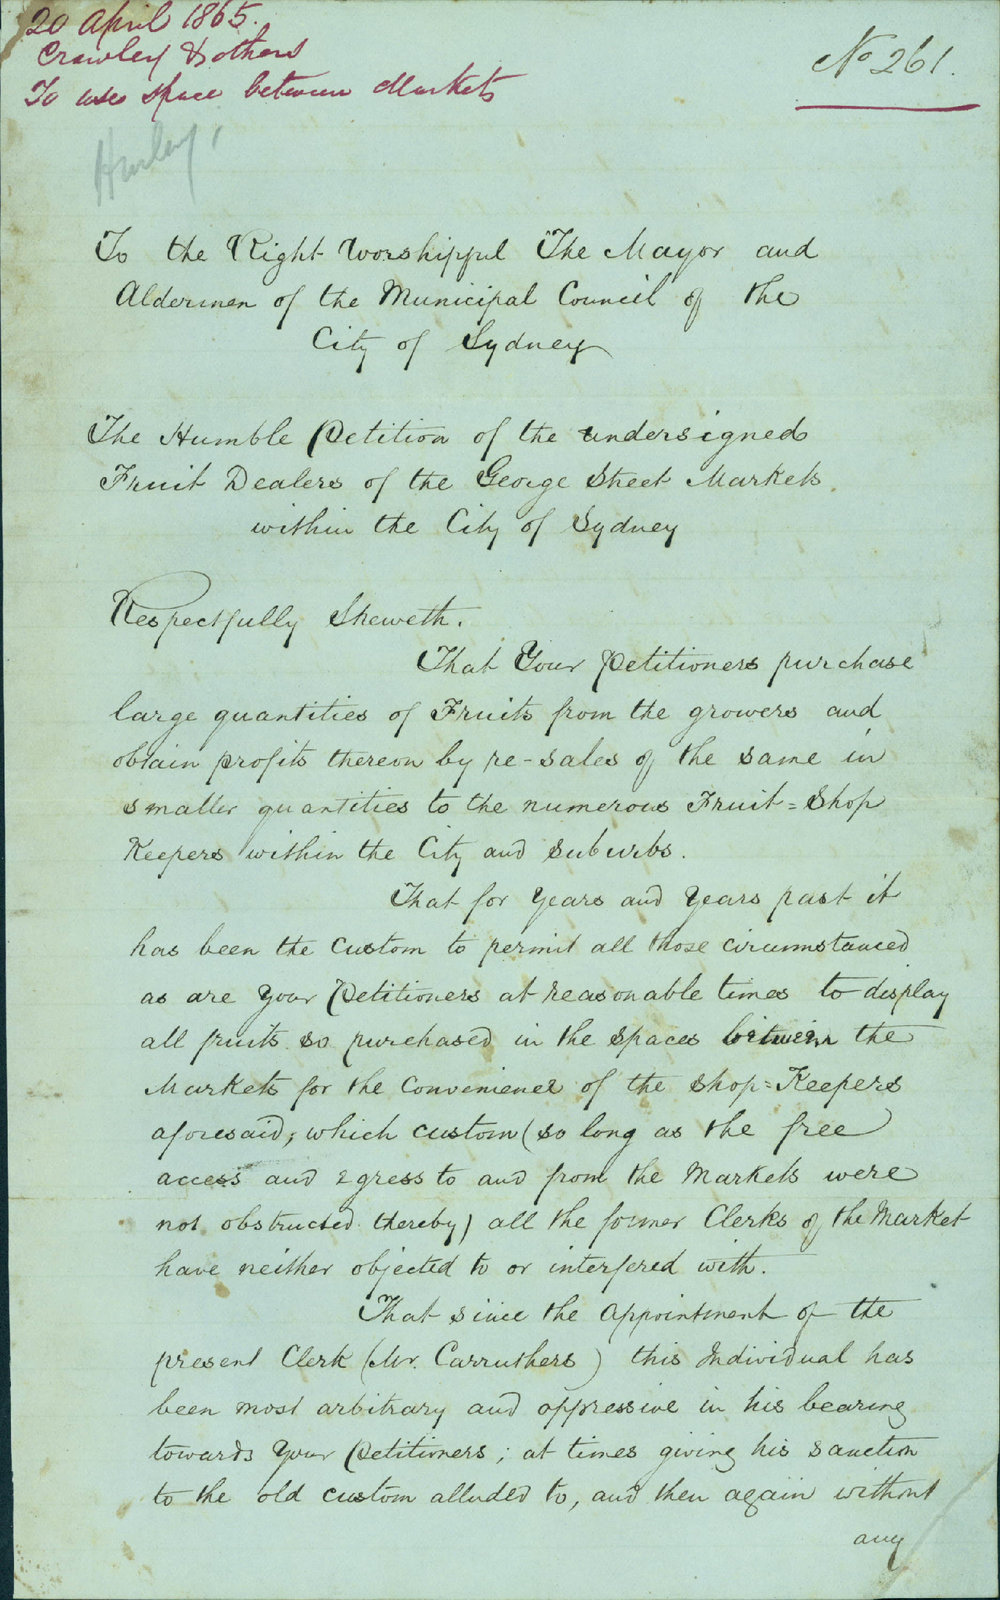 20 April 1865.
Crawley & others
To use space between Markets
No 261.
Hurley,
To the Right Worshipful The Mayor and
Aldermen of the Municipal Council of the
City of Sydney
The Humble Petition of the undersigned
Fruit Dealers of the George Street Markets
within the City of Sydney
Respectfully Sheweth.
That Your Petitioners purchase
large quantities of Fruits from the growers and
obtain profits thereon by re-sales of the same in
smaller quantities to the numerous Fruit=Shop
Keepers within the City and suburbs.
That for years and years past it
has been the custom to permit all those circumstanced
as are your Petitioners at reasonable times to display
all fruits so purchased in the spaces between the
Markets for the convenience of the shop=Keepers
aforesaid; which custom (so long as the free
access and egress to and from the Markets were
not obstructed thereby) all the former Clerks of the Market
have neither objected to or interfered with.
That since the appointment of the
present Clerk (Mr. Carruthers) this Individual has
been most arbitrary and oppressive in his bearing
towards Your Petitioners; at times giving his sanction
to the old custom alluded to, and then again without
any